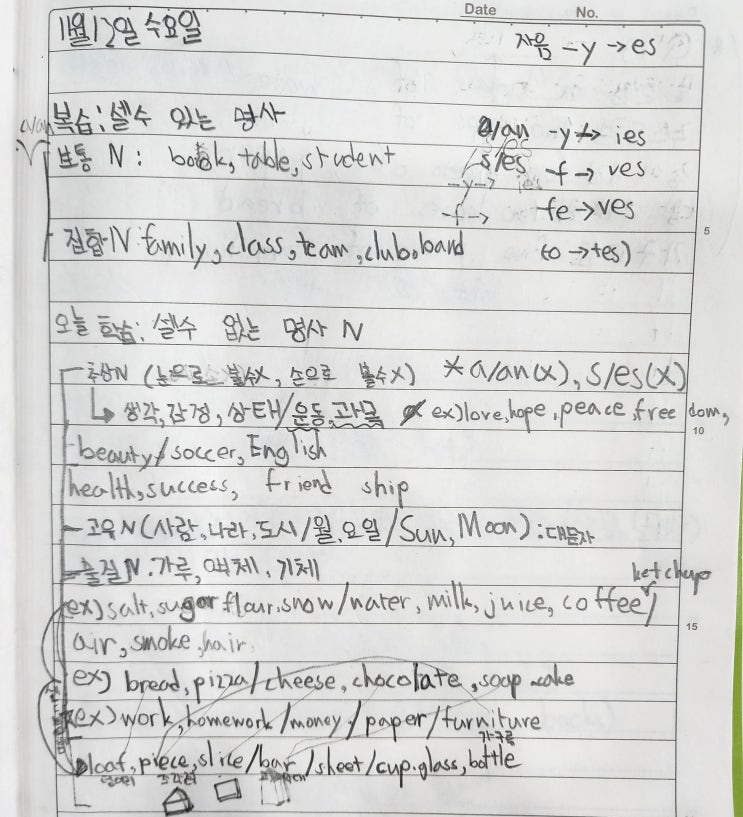 Date No.
11월 12일 수요일
자음 -y → es
복습: 셀수 있는 명사
a/an -y → ies
a/an
보통 N: book, table, student
s/es -f → ves
--y→ ies
-f→ fe → ves
5
집합 N family, class, team, club, band
(o → +es)
오늘 학습: 셀수 없는 명사 N
추상N (눈으로 볼수X, 손으로 볼수X) * a/an(x), s/es(x)
↳ 생각, 감정, 상태/운동, 과목 ex) love, hope, peace, free dom,
10
beauty/soccer, English
health, success, friend ship
- 고유 N (사람, 나라, 도시/월, 요일/Sun, Moon): 대문자
- 물질 N: 가루, 액체, 기체
ketchup
ex) salt, sugar flour, snow/water, milk, juice, coffee/
15
air, smoke, hair
ex) bread, pizza/cheese, chocolate, soap cake
ex) work, homework/money/paper/furniture
가구류
loaf, piece, slice/bar/sheet/cup.glass, bottle
덩어리 조각